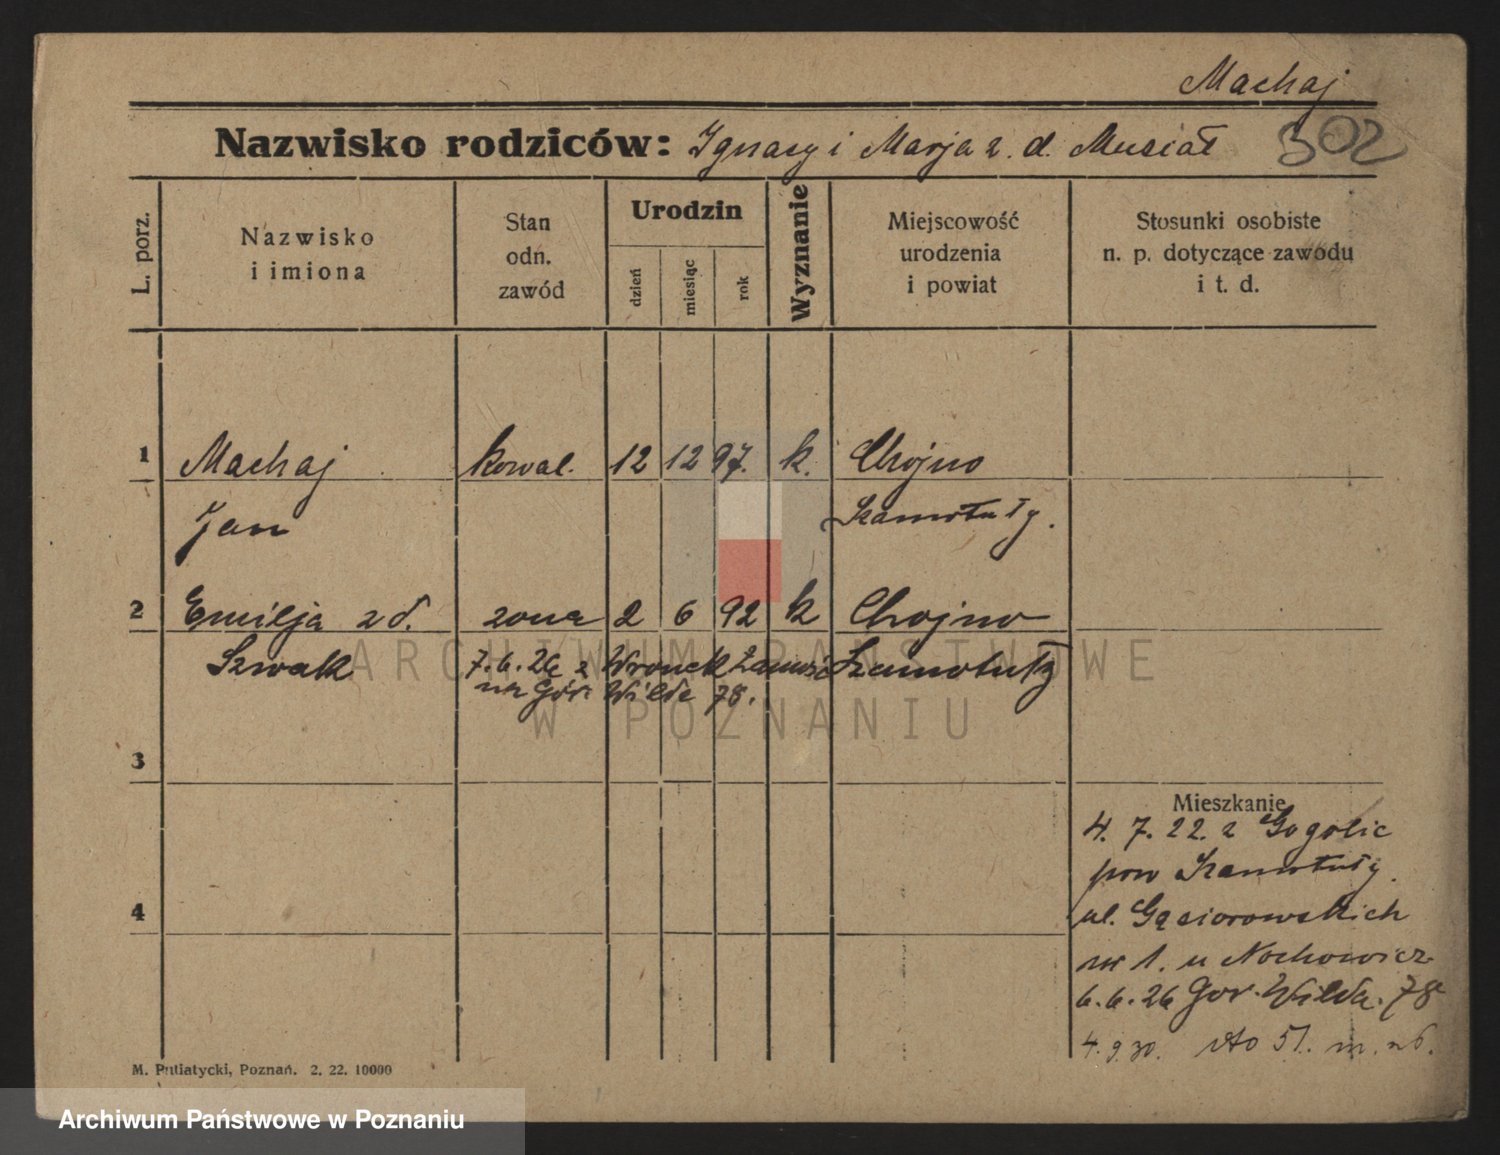 Machaj
Nazwisko rodziców: Ignacy i Marja z. d. Musiał
502
L. porz.
Nazwisko
i imiona
Stan
odn.
zawód
Urodzin
dzień
miesiąc
rok
Wyznanie
Miejscowość
urodzenia
i powiat
Stosunki osobiste
n. p. dotyczące zawodu
i t. d.
1 Machaj kowal. 12 12 97. k. Chojno
Jan Szamotuły.
2 Emilja z d. zona 2 6 92 k Chojno
Szwak 7.6.26 z Wronek Zamość Szamotuły
na Gór. Wilda 78.
3
4
Mieszkanie
4. 7. 22. z Gogolic
pow Szamotuły.
ul. Gąsiorowskich
nr 1. u Nochowicz
6.6.26 Gor. Wilda. 78
4.9.30. 51. m.
M. Putiatycki, Poznań. 2. 22. 10000
ARCHIWUM PAŃSTWOWE
W POZNANIU
Archiwum Państwowe w Poznaniu